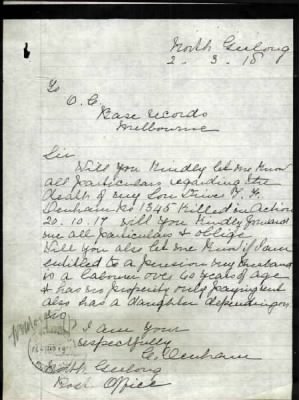 North Geelong
2. 3. 18
To
O. C.
Base Records
Melbourne
Sir
Will you kindly let me know
all particulars regarding the
death of my Son Driver
Denham No 1345 Killed in Action
20. 10. 17 will you kindly forward
me all particulars & oblige
Will you also let me know if I am
entitled to a pension my husband
is a laborer over 60 years of age
& has no property only paying rent
also has a daughter depending on
him
I am Your
respectfully
Denham
North Geelong
Post Office